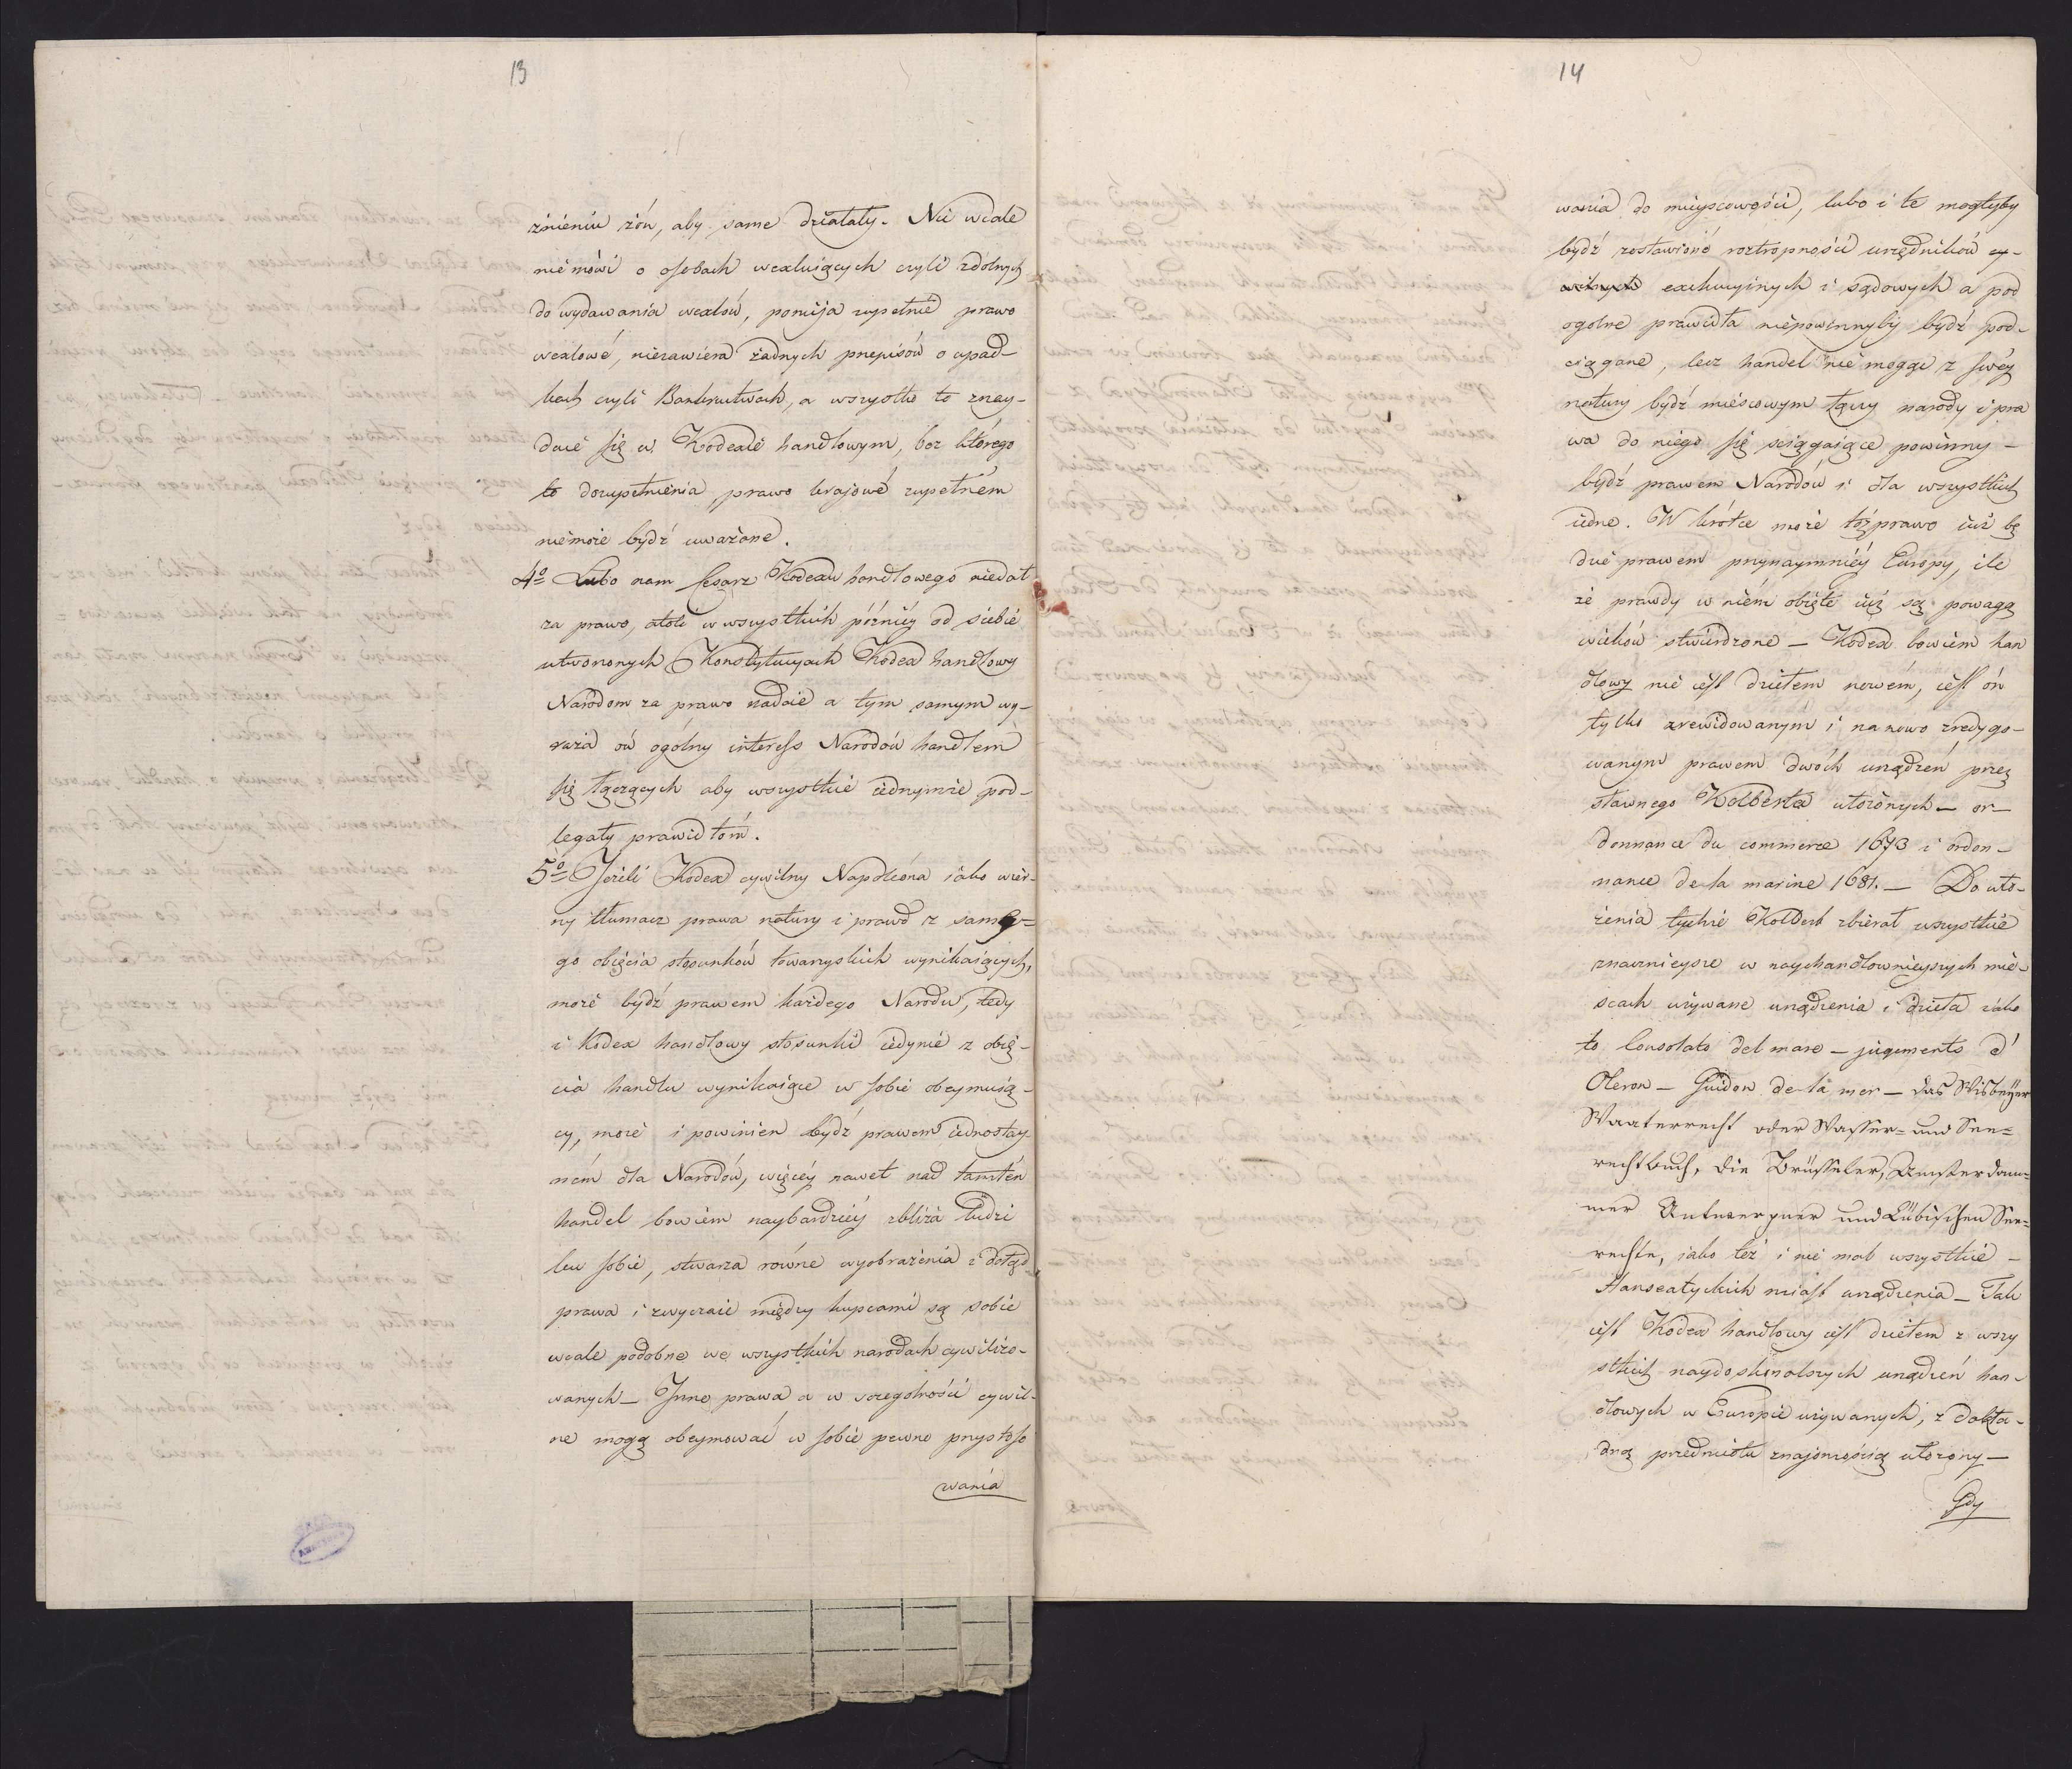 13
źnieniu żón, aby same działały. Nic wcale
niemówi o osobach wexluiących czyli zdolnych
do wydawania wexlów, pomija zupełnie prawo
wexlowé, niezawiera żadnych przepisów o upad-
kach czyli Bankrutwach, a wszystko to znay-
duie się w Kodexie handlowym, bez którego
to dozupełnienia, prawo krajowé zupełném
niemoże bydź uważone.
4o Lubo nam Cesarz Kodexu handlowego niedał
za prawo, atoli w wszystkich pózniéy od siebie
utworzonych Konstytucyach Kodex handlowy
Narodom za prawo nadaie a tym samym wy-
raża ów ogólny interess Narodów handlem
się łączących aby wszystkie iednymże pod-
legały prawidłom.
5o Jeżeli Kodex cywilny Napoleóna iako wier-
ny tłumacz prawa natury i prawd z same-
go obięcia stosunków towarzyskich wynikaiących,
może bydź prawem każdego Narodu, tedy
i Kodex handlowy stosunki iedynie z obię-
cia handlu wynikaiące w sobie obeymuią-
cy, może i powinien bydź prawem iednostay-
ném dla Narodów, więcéy nawet nad tamtén
handel bowiem naybardziéy zbliża ludzi
ku sobie, stwarza równe wyobrażenia i dotąd
prawa i zwyczaie między kupcami są sobie
wcale podobne we wszystkich narodach cywilizo-
wanych — Inne prawa, a w szczególności cywil-
ne mogą obeymować w sobie pewne przystoso
wania
14
wania do mieyscowości, lubo i te mogłyby
bydź zostawioné roztropności urzędników cy-
wilnych exekucyinych i sądowych a pod
ogolne prawidła niepowinnyby bydź pod-
ciągane, lecz handel nie mogąc z swéy
natury bydź mieścowym łączy narody i pra
wa do niego się sciągaiące powinny —
bydź prawem Narodów i dla wszystkich
iedne. W krótce może to prawo iuż bę
dzie prawem przynaymniéy Europy, ile
że prawdy w niém obięte iuż są powagą
wieków stwierdzone — Kodex bowiem han
dlowy nie iest dziełem nowém, iest ón
tylko zrewidowanym i na nowo zredygo-
wanym prawem dwóch urządzeń przez
sławnego Kolberta ułożónych — or-
donnance du commerce 1673 i ordon-
nance de la marine 1681. — Do uło-
żenia tychże Kolbert zbierał wszystkie
znacznieysze w nayhandlownieyszych mie-
scach używane urządzenia i dzieła iako
to Consolato del mare — jugements d'
Oleron — Guidon de la mer — das Wisbeyer
Waaterrecht oder Wasser- und See-
rechtbuch, die Brüsseler, Amsterdam-
mer Antwerpner und Lübischen See-
rechte, iako też i nie mal wszystkie —
Hanseatyckich miast urządzenia — Tak
iest Kodex handlowy iest dziełem z wszy
stkich naydoskonalszych urządzeń han-
dlowych w Europie używanych, z dokła-
dną przedmiotu znajomością ułożony —
Gdy